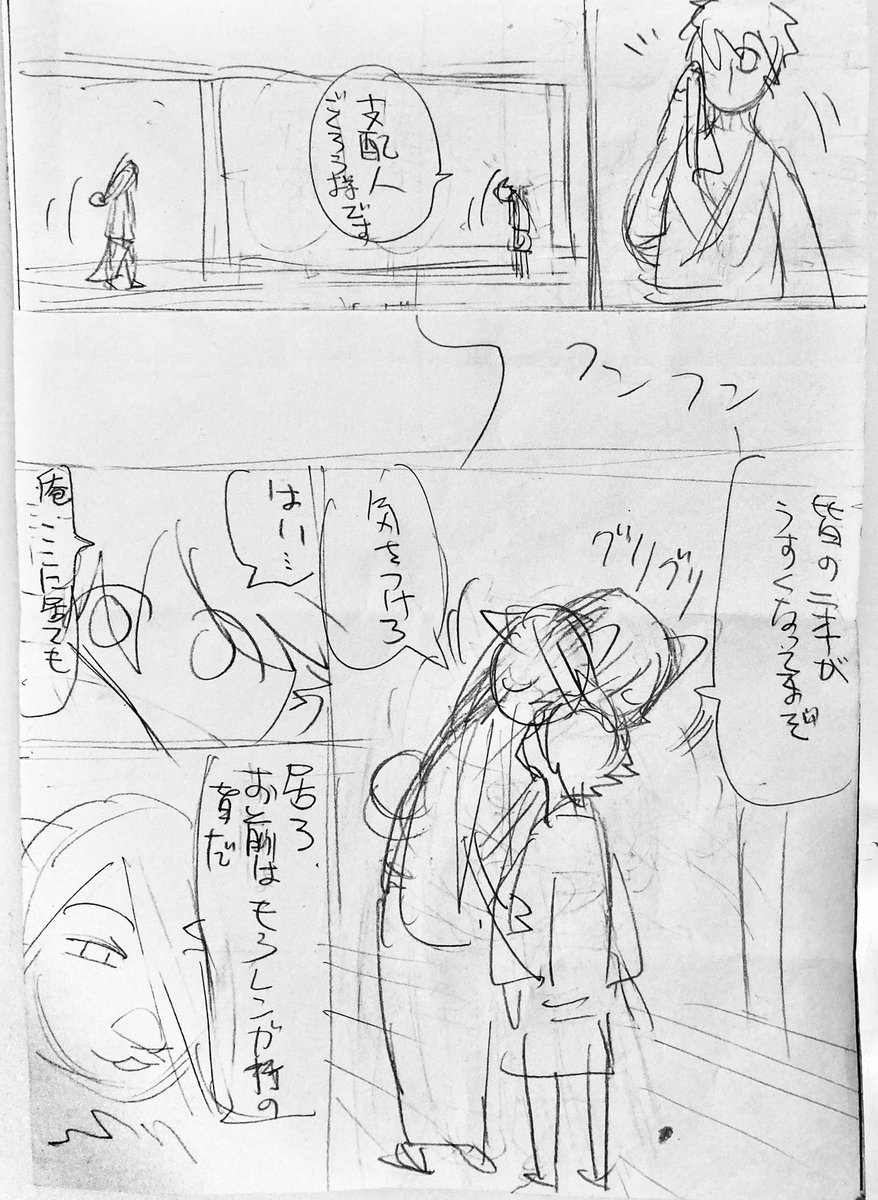 支配人
ごくろう様です
フンフン
皆の二本が
うすくなってるぞ
グリグリ
気をつけろ
はい…
俺ここに居ても
居ろ
お前はもう
だ